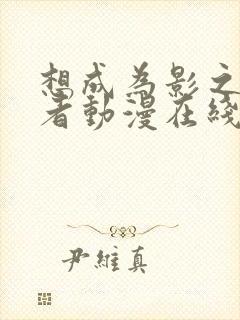 想成为影之
者動漫在綫
尹維真